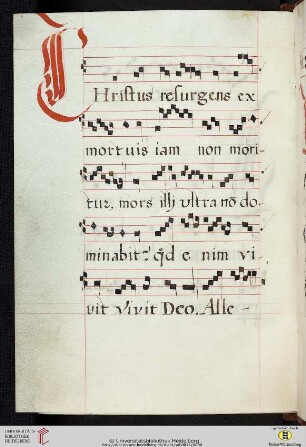 CHristus resurgens ex
mortuis iam non mori-
tur, mors illj ultra nō do-
minabit², qd e nim vi
vit Vivit Deo. Alle -
UNIVERSITÄTS-
BIBLIOTHEK
HEIDELBERG
© Universitätsbibliothek Heidelberg
Baden-Württemberg